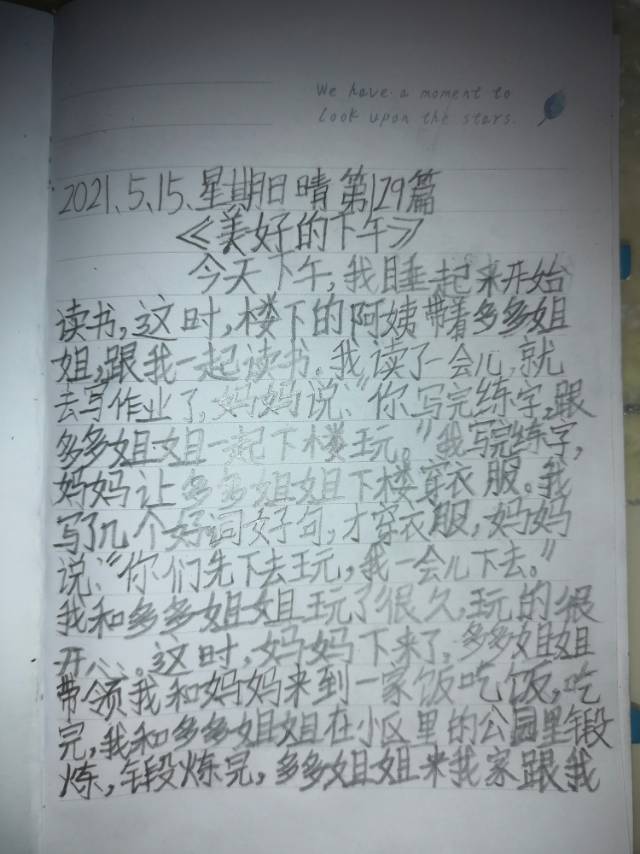 We have a moment to
look upon the stars.
2021、5、15、星期日晴第129篇
《美好的下午》
今天下午,我睡起来开始
读书,这时,楼下的阿姨带着多多姐
姐,跟我一起读书。我读了一会儿,就
去写作业了,妈妈说:“你写完练字,跟
多多姐姐一起下楼玩。”我写完练字,
妈妈让多多姐姐下楼穿衣服。我
写了几个好词好句,才穿衣服,妈妈
说:“你们先下去玩,我一会儿下去。”
我和多多姐姐玩了很久,玩的很
开心。这时,妈妈下来了,多多姐姐
带领我和妈妈来到一家饭吃饭,吃
完,我和多多姐姐在小区里的公园里锻
炼,锻炼完,多多姐姐来我家跟我